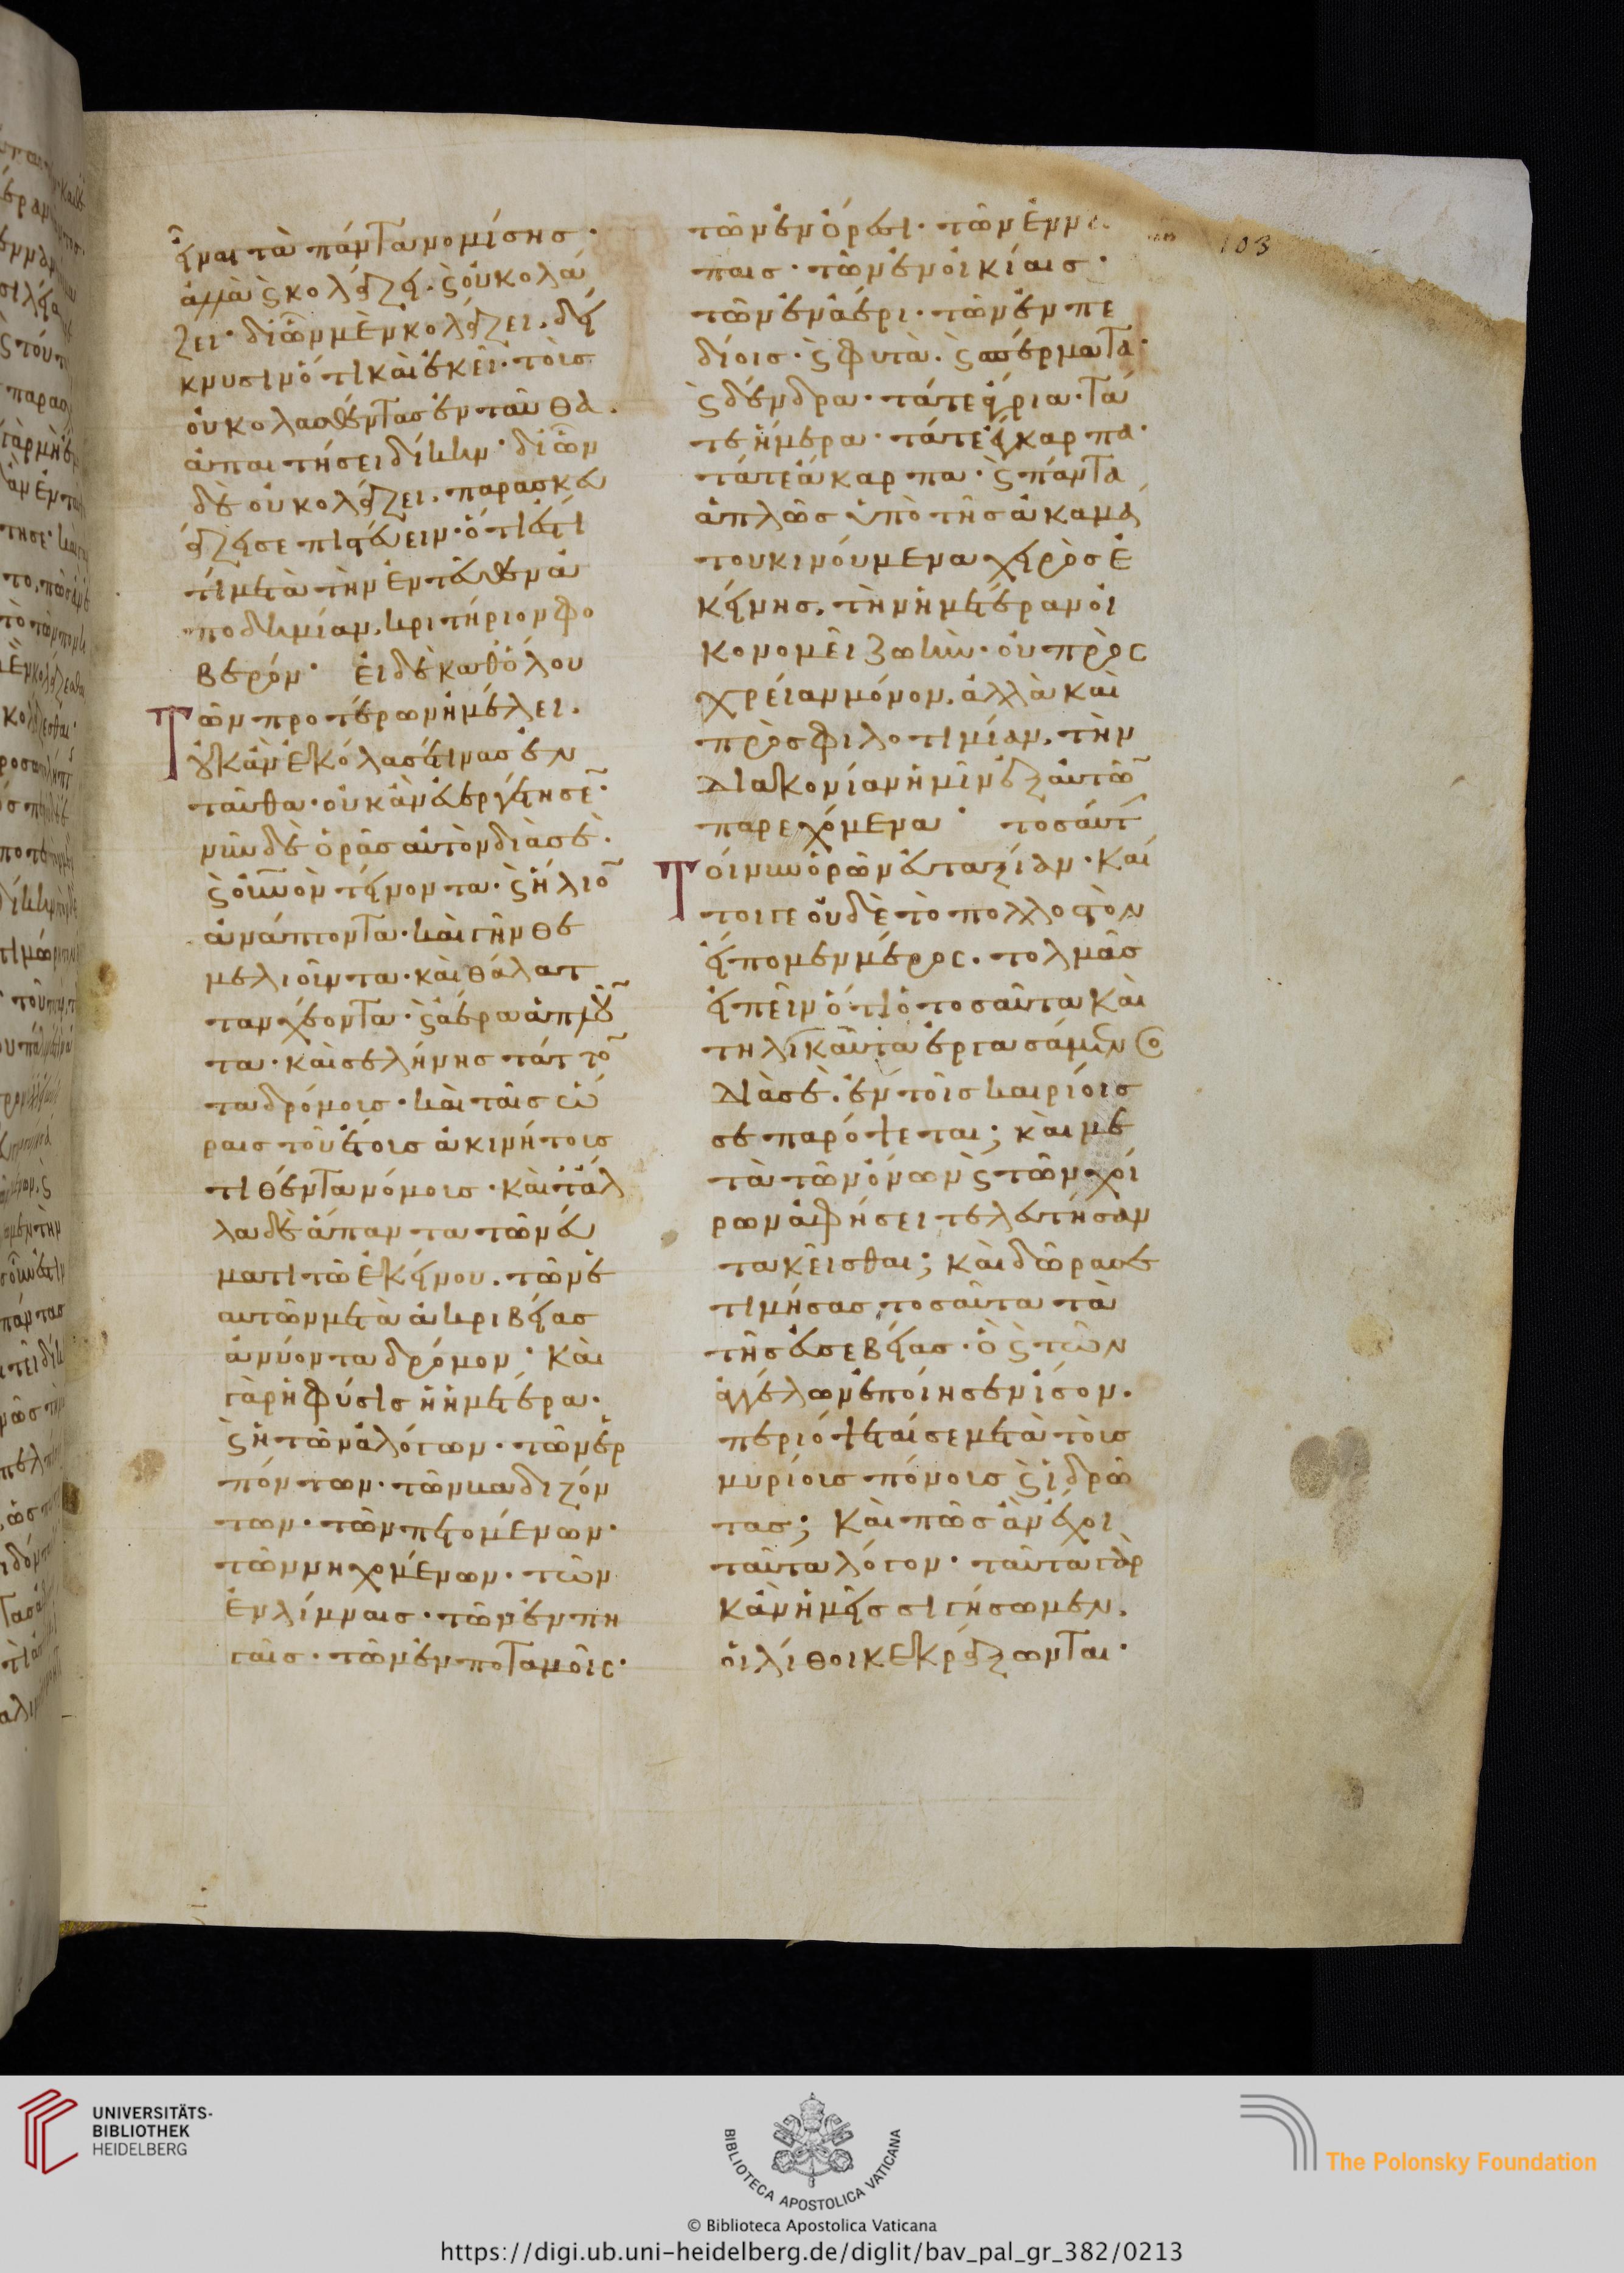 εἶναι τὰ πάντα νομίσης·
ἀλλὰ ϛ κολάζει· ϛ οὐ κολά
ζει· δι' ὧν μὲν κολάζει, δεί
κνυσιν ὅτι καὶ ἐκεῖ· τοῖς
οὐ κολασθέντας ἐνταῦθα·
ἀπαιτήσει δίκην· δι' ὧν
δὲ οὐ κολάζει· παρασκευ
άζει σε πιστεύειν· ὅτι ἐστί
τι μετὰ τὴν ἐντεῦθεν ἀ
ποδημίαν, κριτήριον φο
βερόν· εἰ δὲ καθόλου
Τῶν προτέρων ἠμέλει·
οὐκ ἂν ἐκόλασέ τινας ἐν
ταῦθα· οὐκ ἂν εὐεργέτησε·
νῦν δὲ ὁρᾶς αὐτὸν διὰ σὲ·
ϛ οὐνὸν τείνοντα· ϛ ἥλιον
ἀνάπτοντα· καὶ γῆν θε
μελιοῦντα· καὶ θάλατ
ταν χέοντα· ϛ ἀέρα ἁπλοῦν
τα· καὶ σελήνης τάττον
τα δρόμοις· καὶ ταῖς ὥ
ραις τοῦ ἔτους ἀκινήτους
τιθέντα νόμους· καὶ τἄλ
λα δὲ ἅπαντα τῶ νεύ
ματι τῶ ἐκείνου· τῶν ἑ
αυτῶν μετὰ ἀκριβείας
ἀνύοντα δρόμον· Καὶ
γὰρ ἡ φύσις ἡ ἡμετέρα·
ϛ ἡ τῶν ἀλόγων· τῶν ἑρ
πόντων· τῶν βαδιζόν
των· τῶν πετομένων·
τῶν νηχομένων· τῶν
ἐν λίμναις· τῶν ἐν πη
γαῖς· τῶν ἐν ποταμοῖς·
τῶν ἐν ὄρεσι· τῶν ἐν νά
παις· τῶν ἐν οἰκίαις·
τῶν ἐν ἀέρι· τῶν ἐν πε
δίοις· ϛ φυτὰ· ϛ σπέρματα·
ϛ δένδρα· τά τε ἄγρια· τά
τε ἥμερα· τά τε εὔκαρπα·
τά τε ἄκαρπα· ϛ πάντα
ἁπλῶς ὑπὸ τῆς ἀκαμά
του κινούμενα χειρὸς ἐ
κείνης, τὴν ἡμετέραν οἰ
κονομεῖ ζωὴν· οὐ πρὸς
χρείαν μόνον, ἀλλὰ καὶ
πρὸς φιλοτιμίαν, τὴν
διακονίαν ἡμῖν ἐξ αὐτῶν
παρεχόμενα· τοσαύτ
Τοίνυν ὁρῶν εὐταξίαν· Καί
τοιγε οὐδὲ τὸ πολλοστὸν
εἴπομεν μέρος· τολμᾶς
εἰπεῖν ὅτι ὁ τοσαῦτα καὶ
τηλικαῦτα ἐργασάμενος
διὰ σὲ· ἐν τοῖς καιρίοις
σε παρόψεται; καὶ με
τὰ τῶν ὄνων ϛ τῶν χοί
ρων ἀφήσει τελευτήσαν
τα κεῖσθαι; καὶ δώρω σε
τιμήσας τοσαύτα τὰ
τῆς εὐσεβείας· ὃ ϛ τῶν
ἀγγέλων ἐποίησεν ἴσον·
περιόψεταί σε μετὰ τοὺς
μυρίους πόνους ϛ ἱδρῶ
τας; Καὶ πῶς ἂν ἔχοι
ταῦτα λόγον· ταῦτα γὰρ
κἂν ἡμεῖς σιγήσωμεν.
οἱ λίθοι κεκράξονται·
103
UNIVERSITÄTS-
BIBLIOTHEK
HEIDELBERG
BIBLIOTECA APOSTOLICA VATICANA
The Polonsky Foundation
© Biblioteca Apostolica Vaticana
https://digi.ub.uni-heidelberg.de/diglit/bav_pal_gr_382/0213